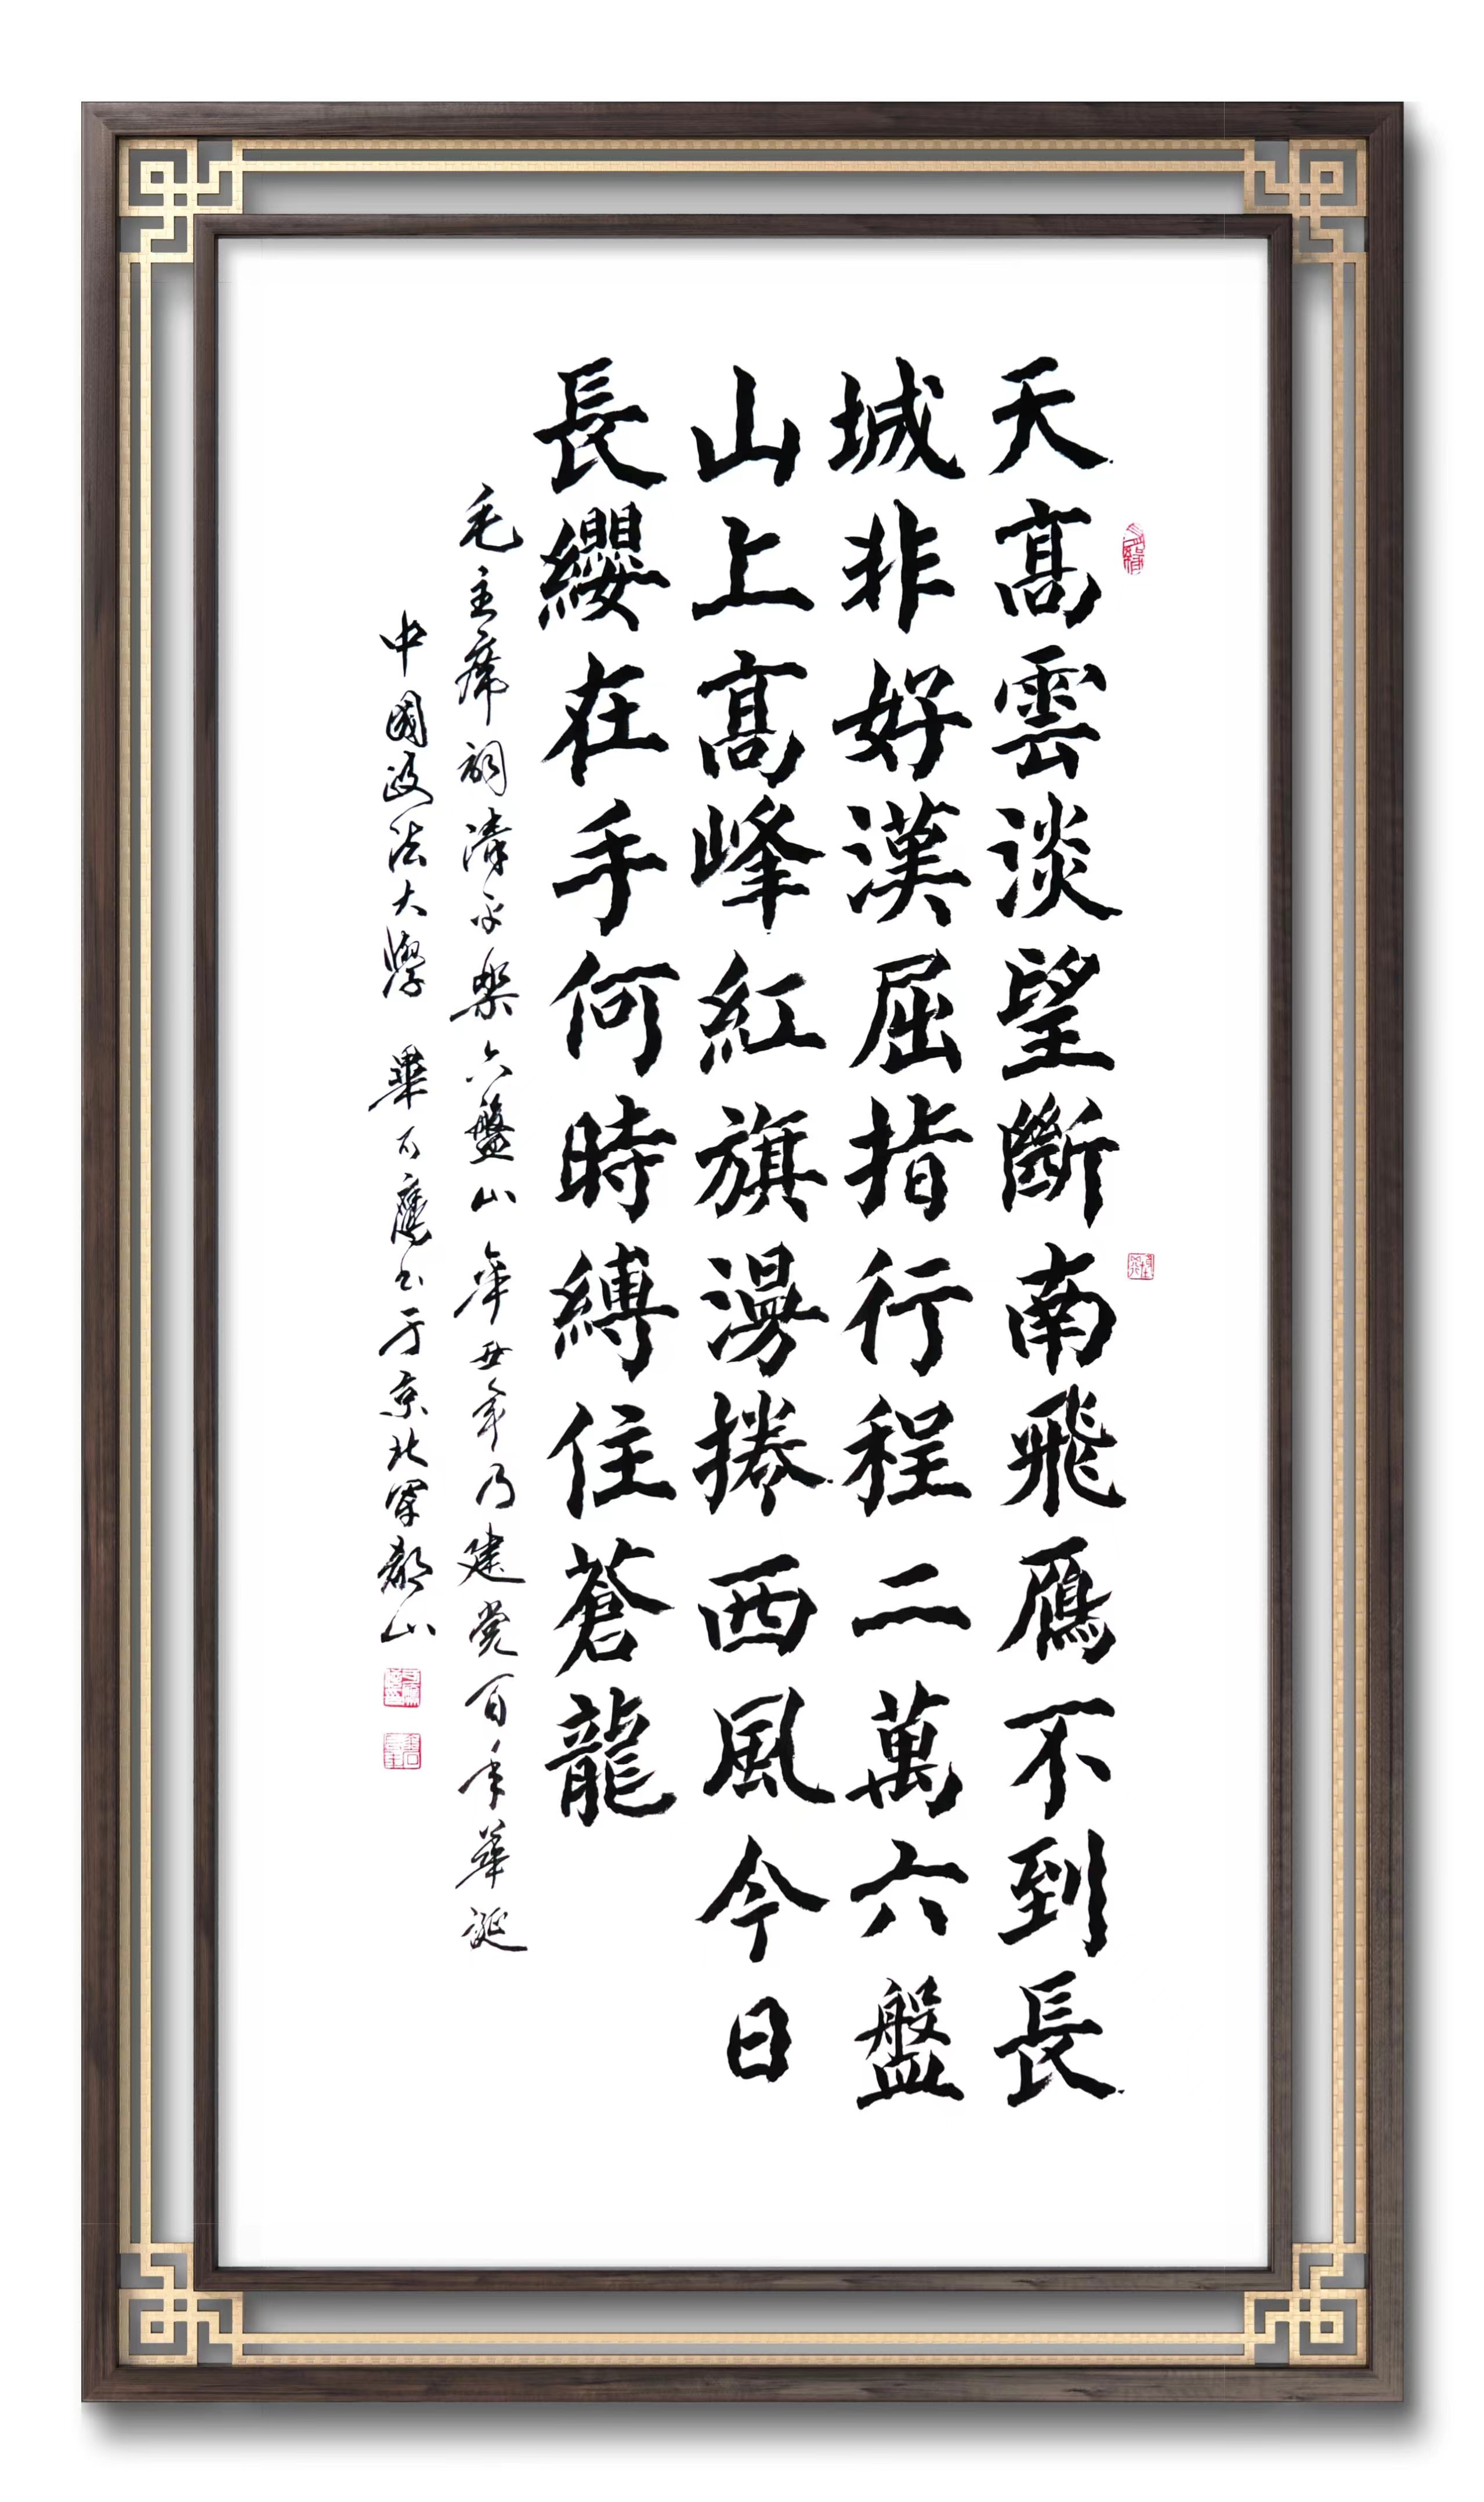 天高雲淡望斷南飛鴈不到長
城非好漢屈指行程二萬六盤
山上高峰紅旗漫捲西風今日
長纓在手何時縛住蒼龍
毛主席詞清平樂六盤山辛丑年乃建党百年華誕
中國政法大學畢可應书于京北軍都山